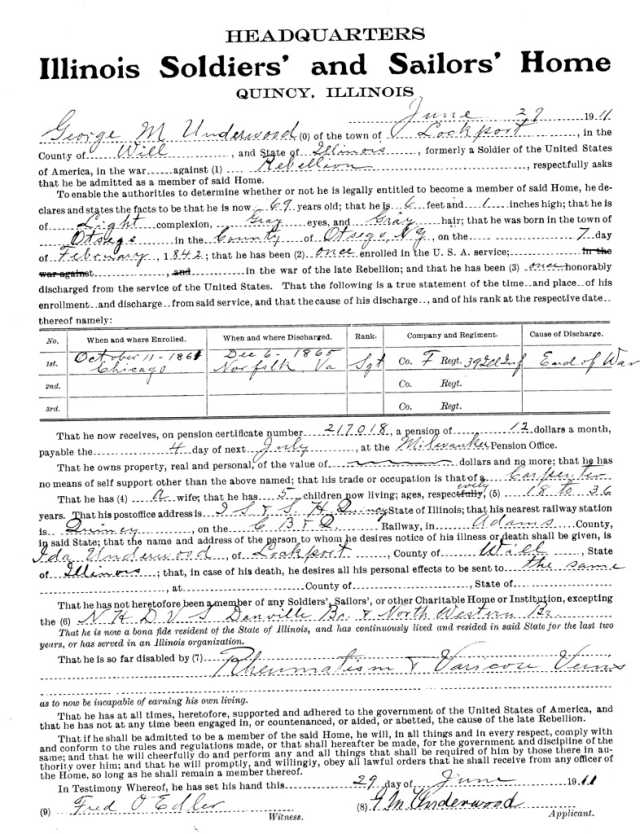 HEADQUARTERS
Illinois Soldiers' and Sailors' Home
QUINCY, ILLINOIS
June 29 1911
George M Underwood (0) of the town of Lockport, in the
County of Will, and State of Illinois, formerly a Soldier of the United States
of America, in the war against (1) Rebellion, respectfully asks
that he be admitted as a member of said Home.
To enable the authorities to determine whether or not he is legally entitled to become a member of said Home, he de-
clares and states the facts to be that he is now 69 years old; that he is 6 feet and 1 inches high; that he is
of Light complexion, Gray eyes, and Gray hair; that he was born in the town of
Otsego in the County of Otsego, N.Y., on the 7 day
of February, 1842; that he has been (2) once enrolled in the U. S. A. service; in the
war against, and in the war of the late Rebellion; and that he has been (3) once honorably
discharged from the service of the United States. That the following is a true statement of the time and place of his
enrollment and discharge from said service, and that the cause of his discharge, and of his rank at the respective date
thereof namely:
No. When and where Enrolled. When and where Discharged. Rank. Company and Regiment. Cause of Discharge.
1st. October 11-1861 Chicago Dec 6-1865 Norfolk Va Sgt Co. F Regt. 39 Ill Inf End of War
2nd. Co. Regt.
3rd. Co. Regt.
That he now receives, on pension certificate number 217018, a pension of 12 dollars a month,
payable the 4 day of next July, at the Milwaukee Pension Office.
That he owns property, real and personal, of the value of dollars and no more; that he has
no means of self support other than the above named; that his trade or occupation is that of a Carpenter
That he has (4) A wife; that he has 5 children now living; ages, respectively, (5) 18 to 36
years. That his postoffice address is I S & S H Quincy State of Illinois; that his nearest railway station
is Quincy, on the C B & Q Railway, in Adams County,
in said State; that the name and address of the person to whom he desires notice of his illness or death shall be given, is
Ida Underwood, of Lockport, County of Will, State
of Illinois; that, in case of his death, he desires all his personal effects to be sent to the same
, at County of, State of
That he has not heretofore been a member of any Soldiers', Sailors', or other Charitable Home or Institution, excepting
the (6) N H D V S Danville Br. & North Western Br.
That he is now a bona fide resident of the State of Illinois, and has continuously lived and resided in said State for the last two
years, or has served in an Illinois organization.
That he is so far disabled by (7) Rheumatism & Varicose Veins
as to now be incapable of earning his own living.
That he has at all times, heretofore, supported and adhered to the government of the United States of America, and
that he has not at any time been engaged in, or countenanced, or aided, or abetted, the cause of the late Rebellion.
That if he shall be admitted to be a member of the said Home, he will, in all things and in every respect, comply with
and conform to the rules and regulations made, or that shall hereafter be made, for the government and discipline of the
same; and that he will cheerfully do and perform any and all things that shall be required of him by those there in au-
thority over him; and that he will promptly, and willingly, obey all lawful orders that he shall receive from any officer of
the Home, so long as he shall remain a member thereof.
In Testimony Whereof, he has set his hand this 29 day of June 1911
(9) Fred O Edler (8) G. M. Underwood
Witness. Applicant.